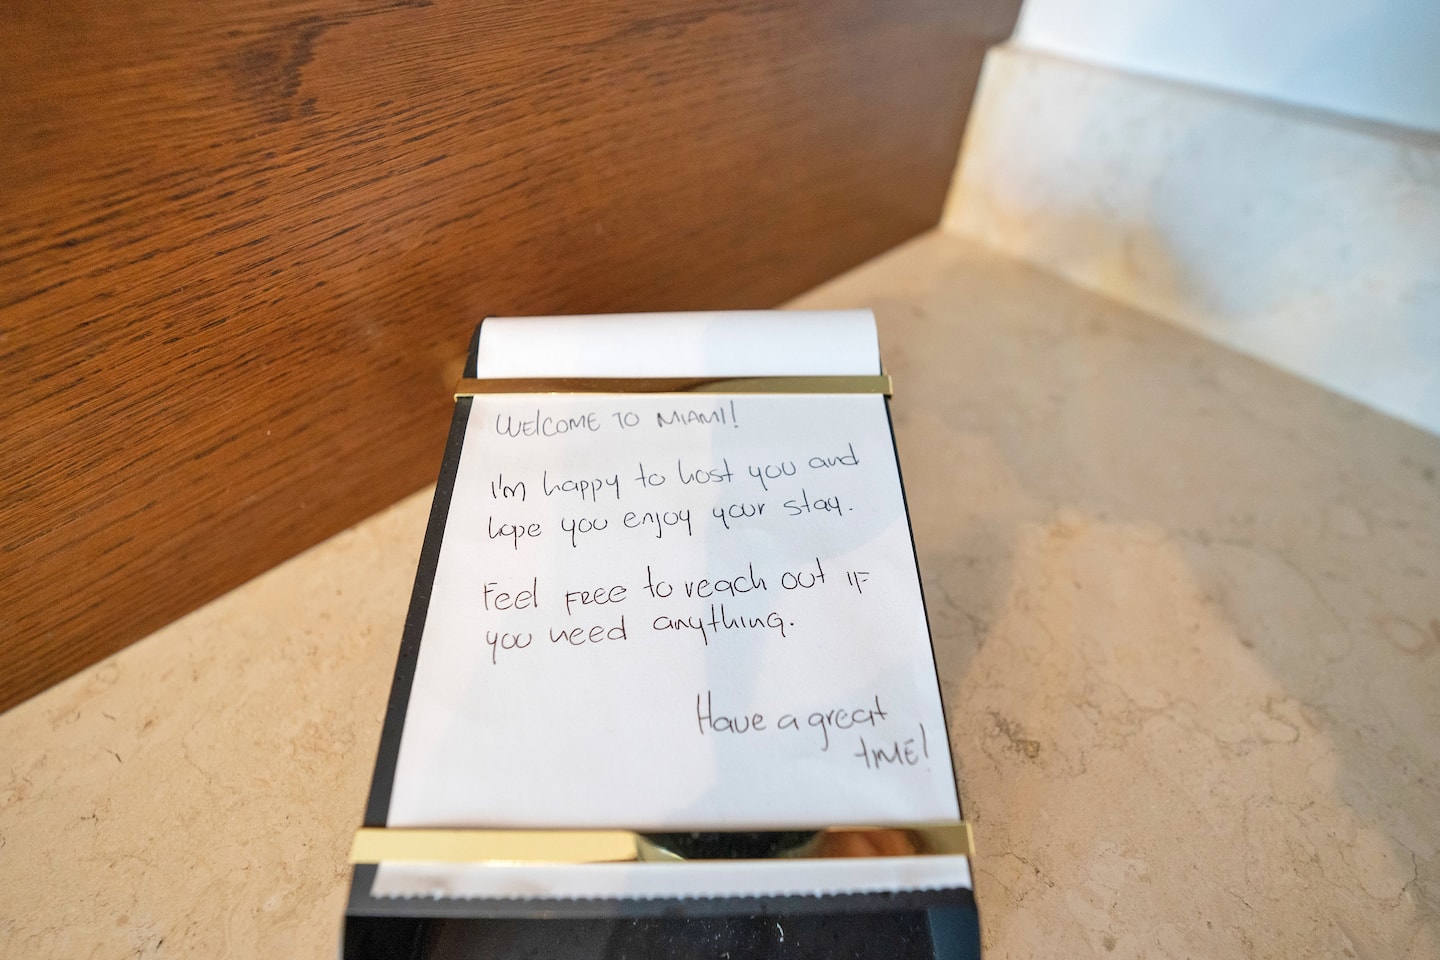 WELCOME TO MIAMI!
I'm happy to host you and
hope you enjoy your stay.
Feel FREE to reach out IF
you need anything.
Have a great
TIME!